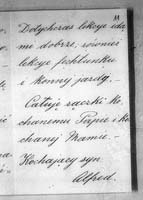 11
Dotychczas lekcye idą
mi dobrze, również
lekcye fechtunku
i konnej jazdy.—
Całuję rączki Ko-
chanemu Papie i Ko-
chanej Mamie.—
Kochający syn
Alfred.